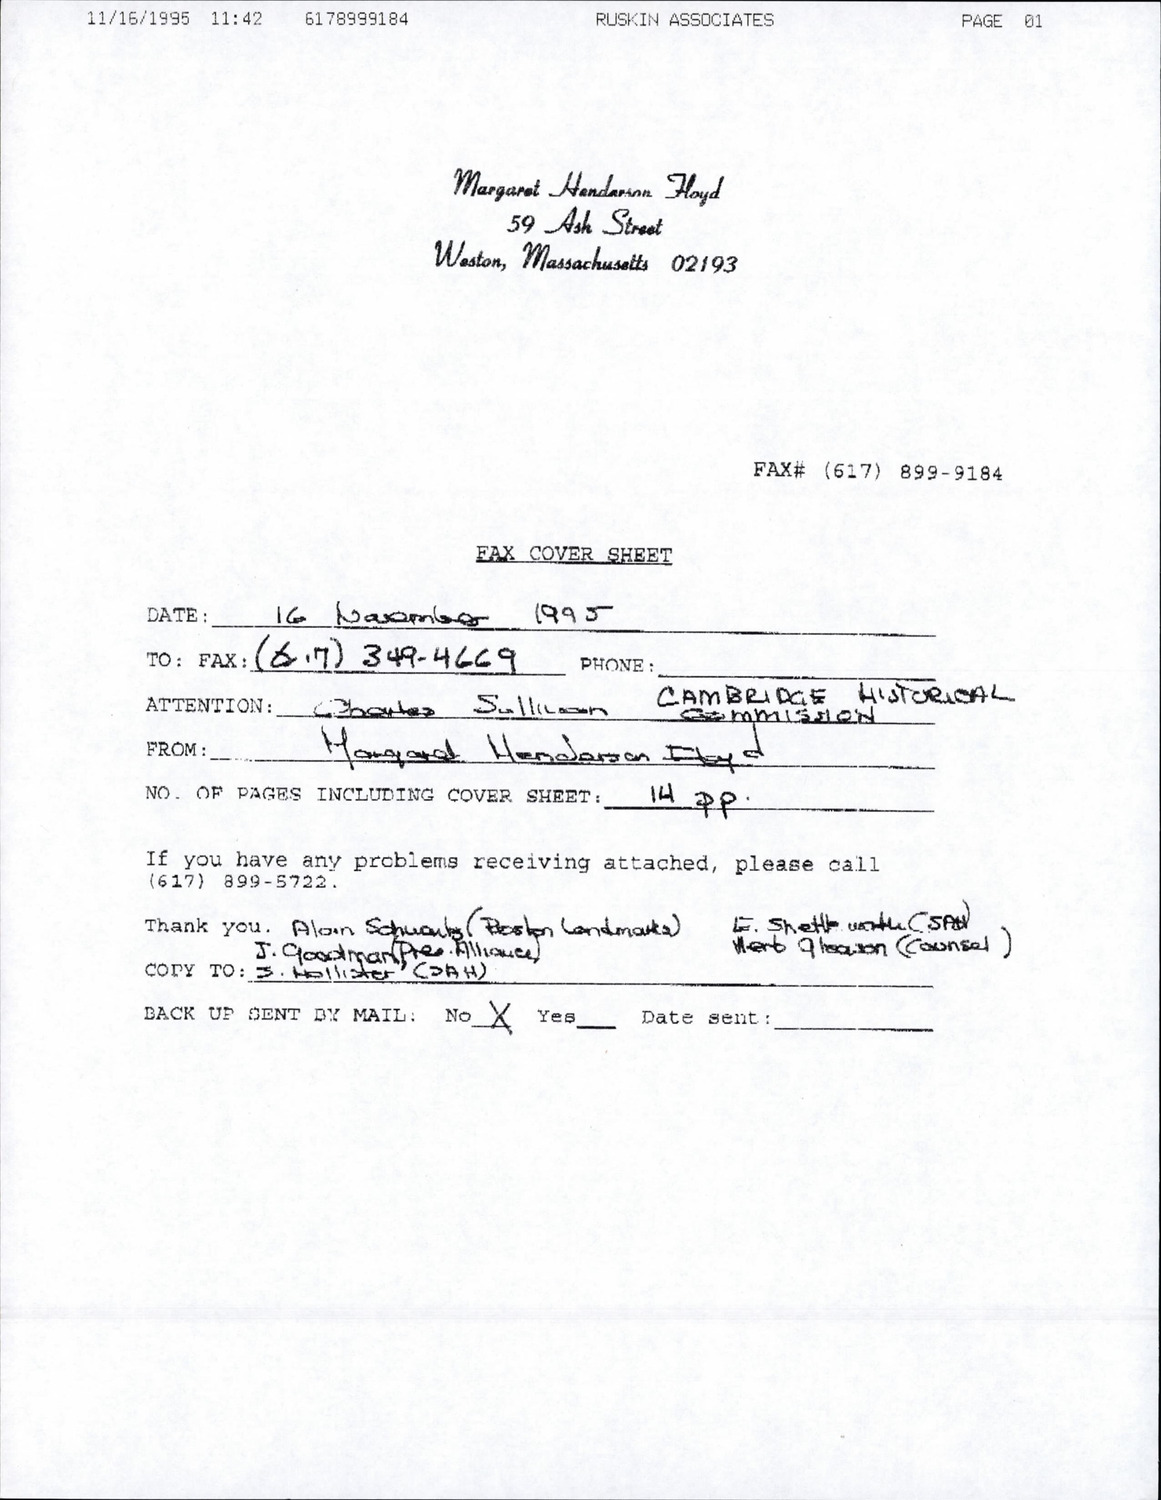 11/16/1995 11:42 6178999184 RUSKIN ASSOCIATES PAGE 01
Margaret Henderson Floyd
59 Ash Street
Weston, Massachusetts 02193
FAX# (617) 899-9184
FAX COVER SHEET
DATE: 16 November 1995
TO: FAX: (617) 349-4669 PHONE:
ATTENTION: Charles Sullivan CAMBRIDGE HISTORICAL
COMMISSION
FROM: Margaret Henderson Floyd
NO. OF PAGES INCLUDING COVER SHEET: 14 pp.
If you have any problems receiving attached, please call
(617) 899-5722.
Thank you. Alan Schwartz (Boston Landmarks) E. Shettleworth (SAH)
J. Goodman (Pres. Alliance) Herb Gleason (Counsel)
COPY TO: J. Hollister (SAH)
BACK UP SENT BY MAIL: No X Yes Date sent: